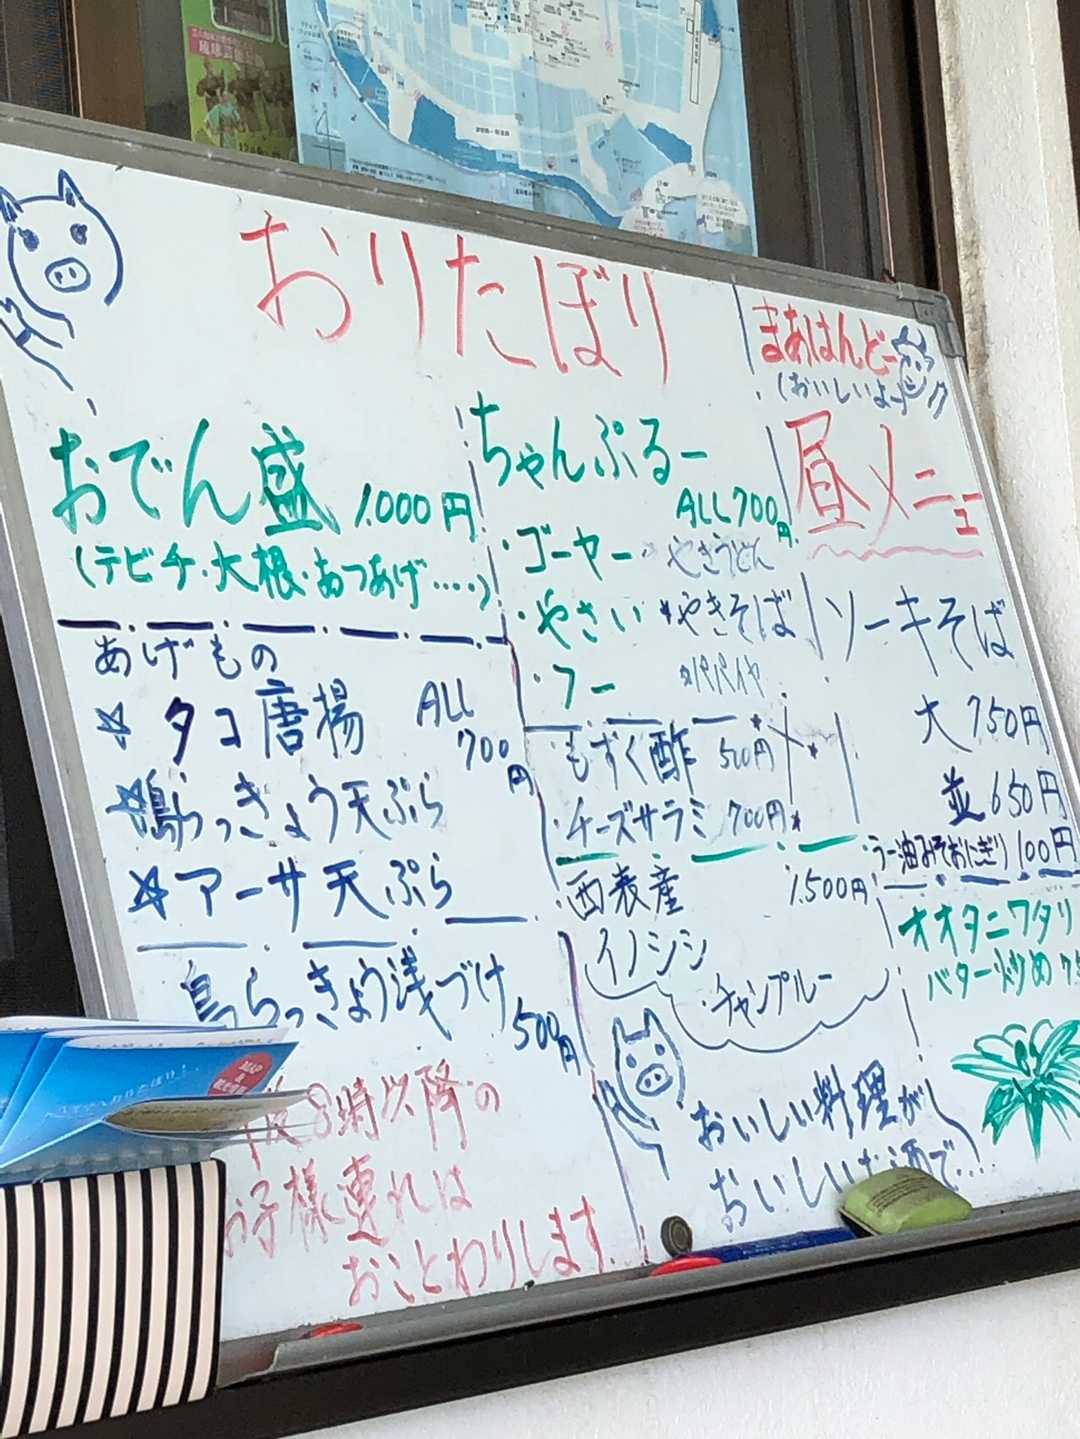 おりたぼり
まあはんどー
(おいしいよー)
おでん盛 1.000円
(テビチ・大根・あつあげ・・・・・)
あげもの
ALL 700円
☆タコ唐揚
☆島らっきょう天ぷら
☆アーサ天ぷら
島らっきょう浅づけ 500円
8時以降の
お子様連れは
おことわりします
ちゃんぷるー
ALL 700円
・ゴーヤー やきうどん
・やさい やきそば
・フー パパイヤ
もずく酢 500円
・チーズサラミ 700円
西表産 1.500円
イノシシ
・チャンプルー
おいしい料理が
おいしいお酒で...
昼メニュー
ソーキそば
大 750円
並 650円
ラー油みそおにぎり 100円
オオタニワタリ
バター炒め